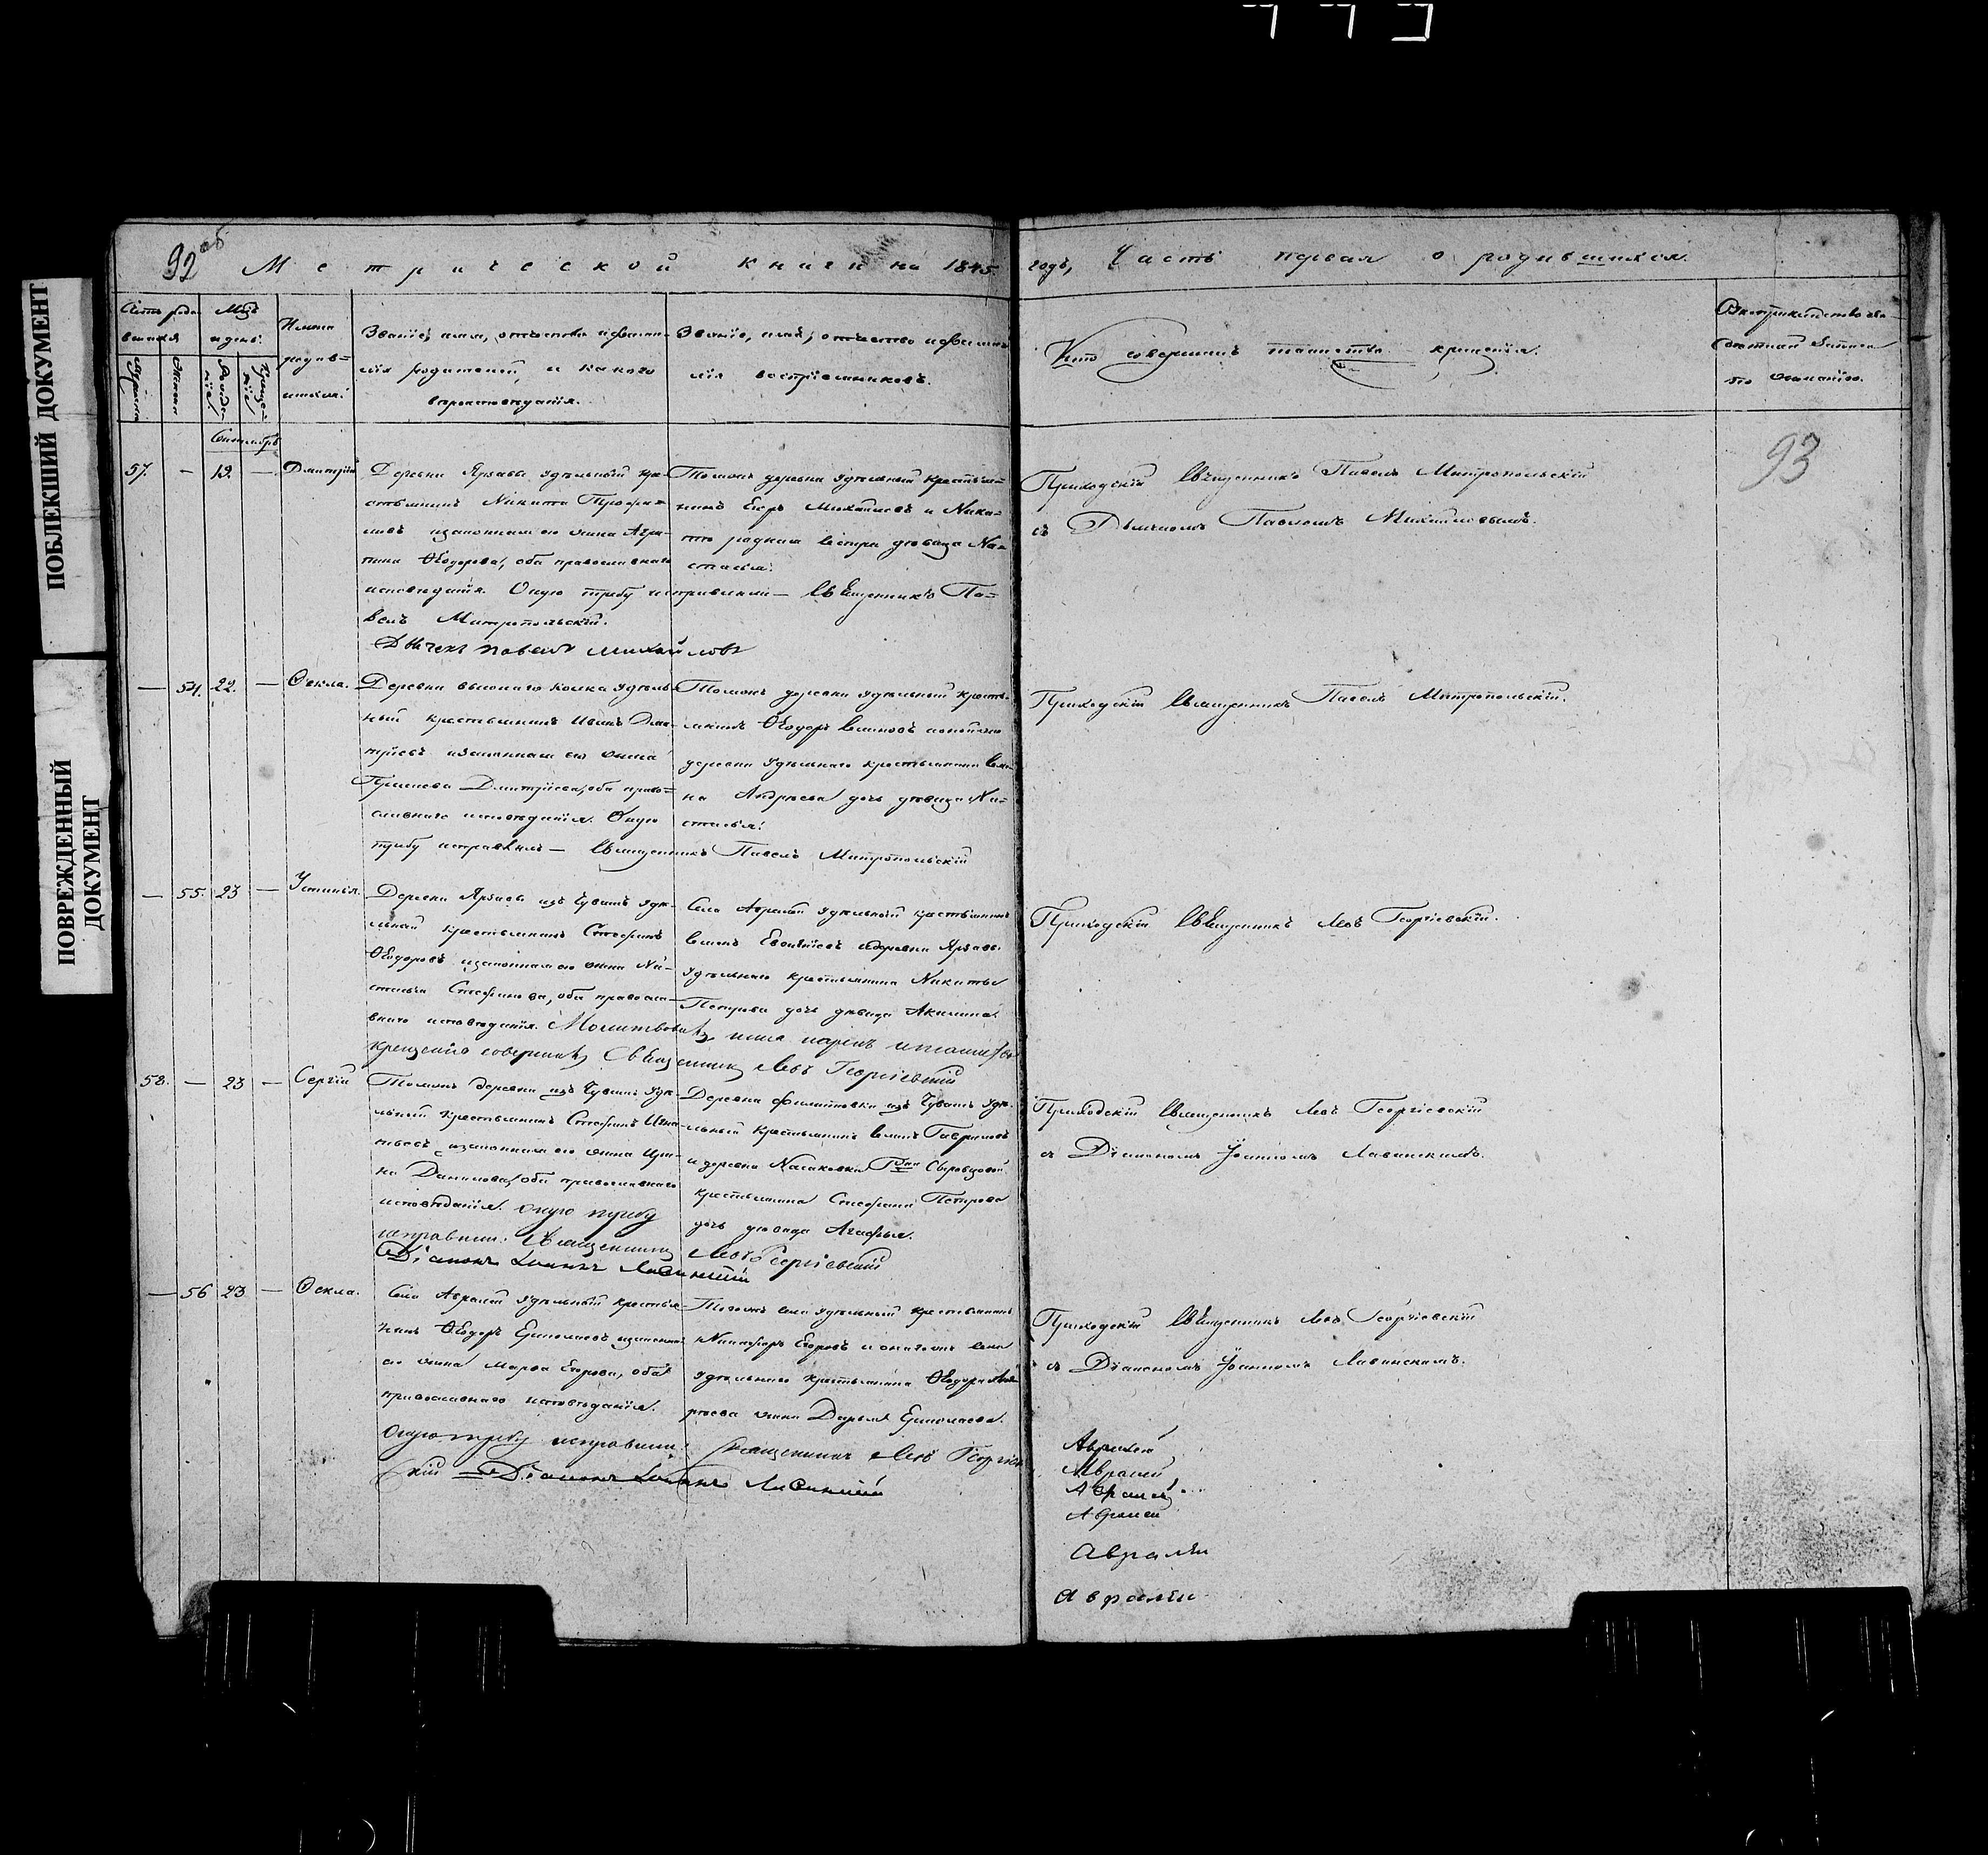 ПОБЛЕКШИЙ ДОКУМЕНТ
ПОВРЕЖДЕННЫЙ
ДОКУМЕНТ
92 об
Метрической книги на 1845
годъ, Часть первая о родившихся.
Мѣс.
и день.
Имена
родив-
шихся.
Званіе, имя, отчество и фами-
лія родителей, и какого
вѣроисповѣданія.
Званіе, имя, отчество и фами-
лія воспріемниковъ.
Кто совершилъ таинство крещенія.
по желанію.
93
Сентябрь
57. — 19. — Дмитрій
Деревни Ярзавы удѣльный кре-
стьянинъ Никита Трофи-
мовъ и законная его жена Агри-
пина Ѳеодорова, оба православнаго
исповѣданія. Оную требу исправляли — Священникъ Па-
велъ Митропольскій.
Дьячекъ Павелъ Михайловъ
Тоежъ деревни удѣльный крестья-
нинъ Егоръ Михайловъ и Ники-
ты родная сестра дѣвица На-
стасья.
Приходскій Священникъ Павелъ Митропольскій
съ Дьячкомъ Павломъ Михайловымъ.
— 54. 22. — Ѳекла.
Деревни удѣль-
ный крестьянинъ Иванъ Дми-
тріевъ и законная его жена
Дмитріева, оба право-
славнаго исповѣданія. Оную
требу исправлялъ — Священникъ Павелъ Митропольскій
Тоежъ деревни удѣльный кресть-
янинъ Ѳеодоръ
деревни удѣльнаго крестьянина Семе-
на Андреева дочь дѣвица На-
стасья.
Приходскій Священникъ Павелъ Митропольскій.
— 55. 23 — Устинья.
Деревни Ярзавы изъ Чувашъ удѣ-
льный крестьянинъ Стефанъ
Ѳеодоровъ и законная его жена На-
стасья Стефанова, оба правосла-
внаго исповѣданія. Молитвовалъ, имя нарекъ и таинство
крещенія совершилъ Священникъ Левъ Георгіевскій
Села Авралей удѣльный крестьянинъ
деревни Ярзавы
удѣльнаго крестьянина Никиты
Петрова дочь дѣвица Акилина.
Приходскій Священникъ Левъ Георгіевскій.
58. — 23 — Сергій
Тоежъ деревни изъ Чувашъ удѣ-
льный крестьянинъ Стефанъ Игна-
тьевъ и законная его жена Ири-
на Данилова, оба православнаго
исповѣданія. Оную требу
исправили: Священникъ Левъ Георгіевскій
Діаконъ Іоаннъ Лавинскій
Деревни Филиповки изъ Чувашъ удѣ-
льный крестьянинъ Гавриловъ
и деревни
крестьянина Стефана Петрова
дочь дѣвица Агафья.
Приходскій Священникъ Левъ Георгіевскій
съ Діакономъ Іоанномъ Лавинскимъ.
— 56 23 — Ѳекла.
Села Авралей удѣльный крестья-
нинъ Ѳеодоръ Ермолаевъ и законная
его жена Марѳа Егорова, оба
православнаго исповѣданія.
Оную требу исправили: Священникъ Левъ Георгіев-
скій Діаконъ Іоаннъ Лавинскій
Тогожъ села удѣльный крестьянинъ
Никифоръ Егоровъ и онагожъ села
удѣльнаго крестьянина Ѳеодора Анд-
реева жена Дарья Ермолаева.
Приходскій Священникъ Левъ Георгіевскій
съ Діакономъ Іоанномъ Лавинскимъ.
Авралей
Авралей
Авралей
Авралей
Авралѣи
Авралѣи